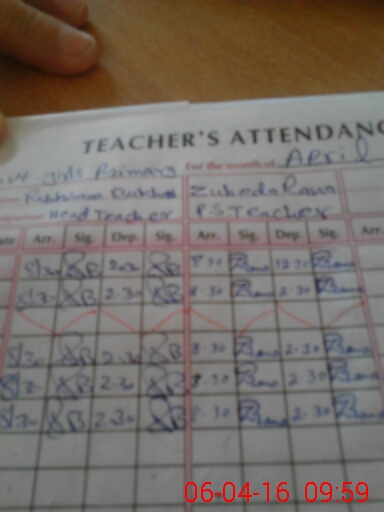 TEACHER'S ATTENDANC
girls Primary For the month of April
Zubeda Rana
Head Teacher PS Teacher
ate Arr. Sig. Dep. Sig. Arr. Sig. Dep. Sig. Arr.
8/30 RB 2.30 RB 8.30 Rana 12.30 Rana
8/30 RB 2.30 RB 8.30 Rana 2.30 Rana
8/30 RB 2.30 RB 8.30 Rana 2.30 Rana
RB 2.30 RB 8.30 Rana 2.30 Rana
8/30 RB 2.30 RB 8.30 Rana 2.30 Rana
06-04-16 09:59